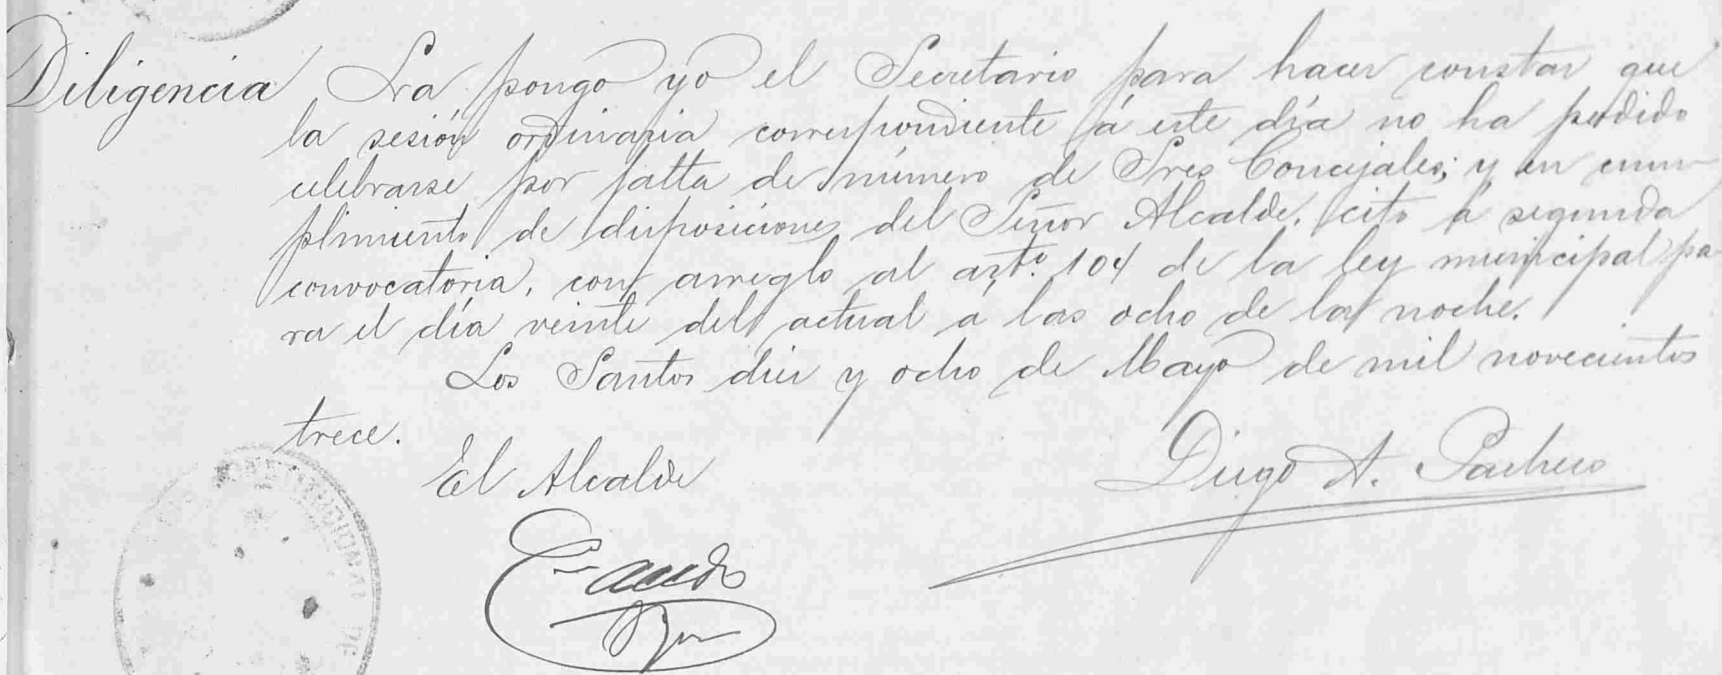 Diligencia La pongo yo el Secretario para hacer constar que
la sesión ordinaria correspondiente á este día no ha podido
celebrarse por falta de número de Sres Concejales; y en cum
plimiento de disposiciones del Señor Alcalde, cito á segunda
convocatoria, con arreglo al artº. 104 de la ley municipal pa
ra el día veinte del actual á las ocho de la noche.
Los Santos diez y ocho de Mayo de mil novecientos
trece.
El Alcalde
Diego A. Pacheco